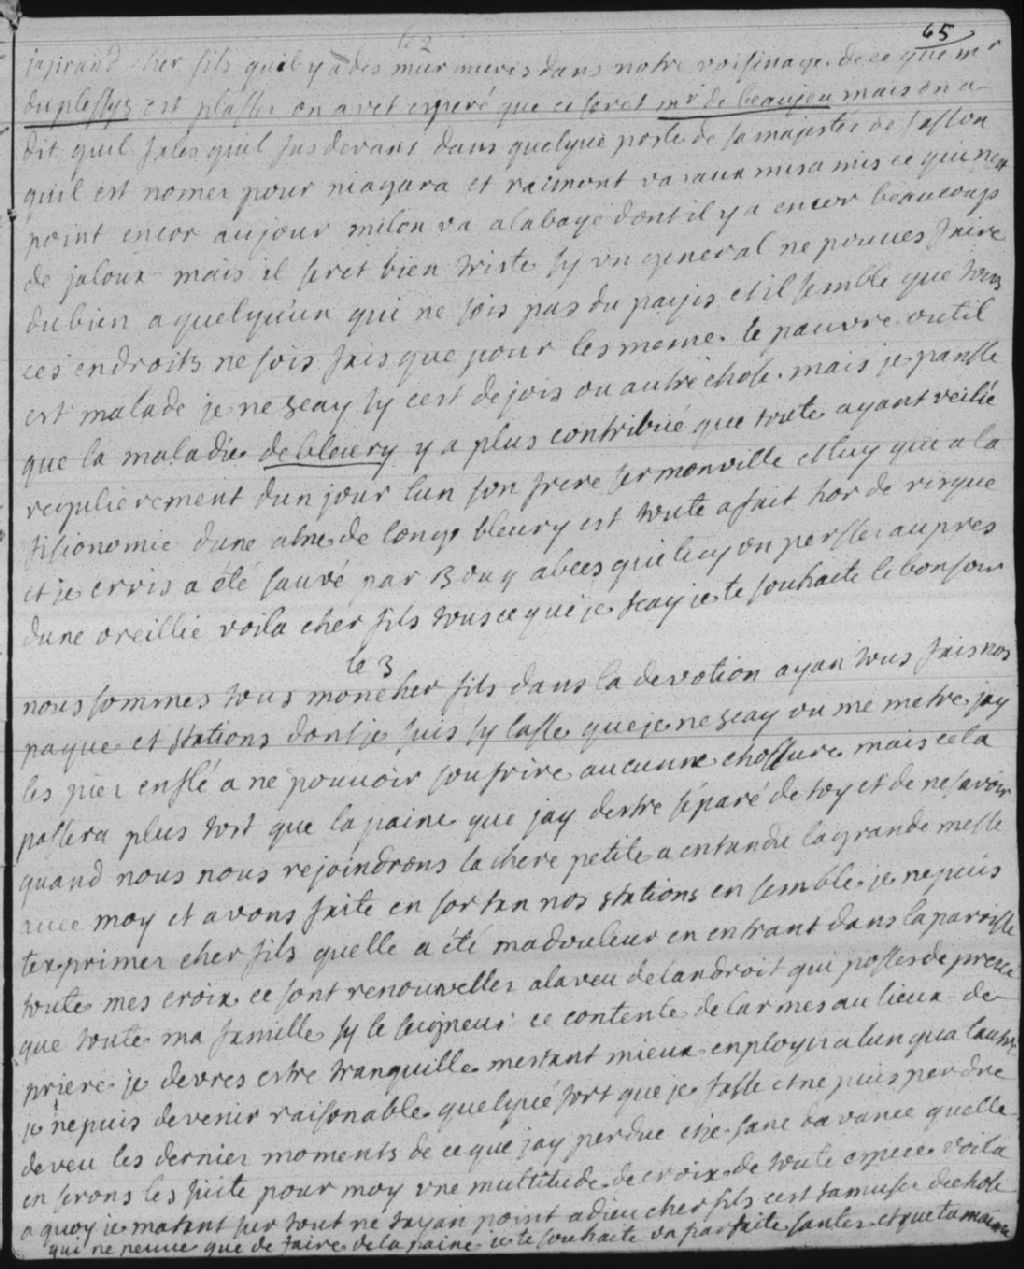 65
le 2
japrand cher fils quil y a des murmures dans notre voisinage de ce que mr
duplessys est plassé on avet esperé que ce seret mr de beaujeu mais on a
dit quil fales quil fus devans dans quelque poste de sa majesté de fasson
quil est nomer pour niagara et raimont va aux misamis ce qui nest
point encor aujour milon va a la baye dont il y a encor beaucoups
de jaloux mais il seret bien triste sy un general ne pouves faire
du bien a quelqu'un qui ne sois pas du payis et il semble que tous
ces endroits ne sois fais que pour les meme le pauvre outil
est malade je ne scay sy cest de jois ou autre chose mais je pansse
que la maladie de bleury y a plus contribué que toute ayant veilié
regulierement dun jour lun son frere sermonville et luy qui a la
fisionomie dune abre de longi bleury est toute a fait hor de risque
et je crois a été sauvé par un abces qui luy on persser aupres
dune oreillie voila cher fils tous ce que je scay je te souhaite le bonsoir
le 3
nous sommes tous mon cher fils dans la devotion ayan tous fais nos
paque et stations dont je suis sy lasse que je ne scay ou me metre jay
les pier enflé a ne pouvoir soufrire aucunne chossure mais cela
passera plus tort que la paine que jay destre séparé de toy et de ne savoir
quand nous nous rejoindrons la chere petite a entandu la grande messe
avec moy et avons faite en sortan nos stations en semble je ne puis
texprimer cher fils quelle a été ma douleur en entrant dans la paroisse
toute mes croix ce sont renouvelles a la veu de landroit qui posses de presce
que toute ma famille sy le seigneur ce contente de larmes au lieux de
priere je devres estre tranquille mestant mieux employer a lun qua lautre
je ne puis devenir raisonable quelque sort que je fasse et ne puis perdre
de veu les dernier moments de ce que jay perdue et je sans davance quelle
en serons les suite pour moy une multitude de croix de toute espece voila
a quoy je matant sur tout ne tayan point adieu cher fils cest tamuser de chose
qui ne peuve que de faire de la paine je te souhaite un parfaite santer et que ta maine